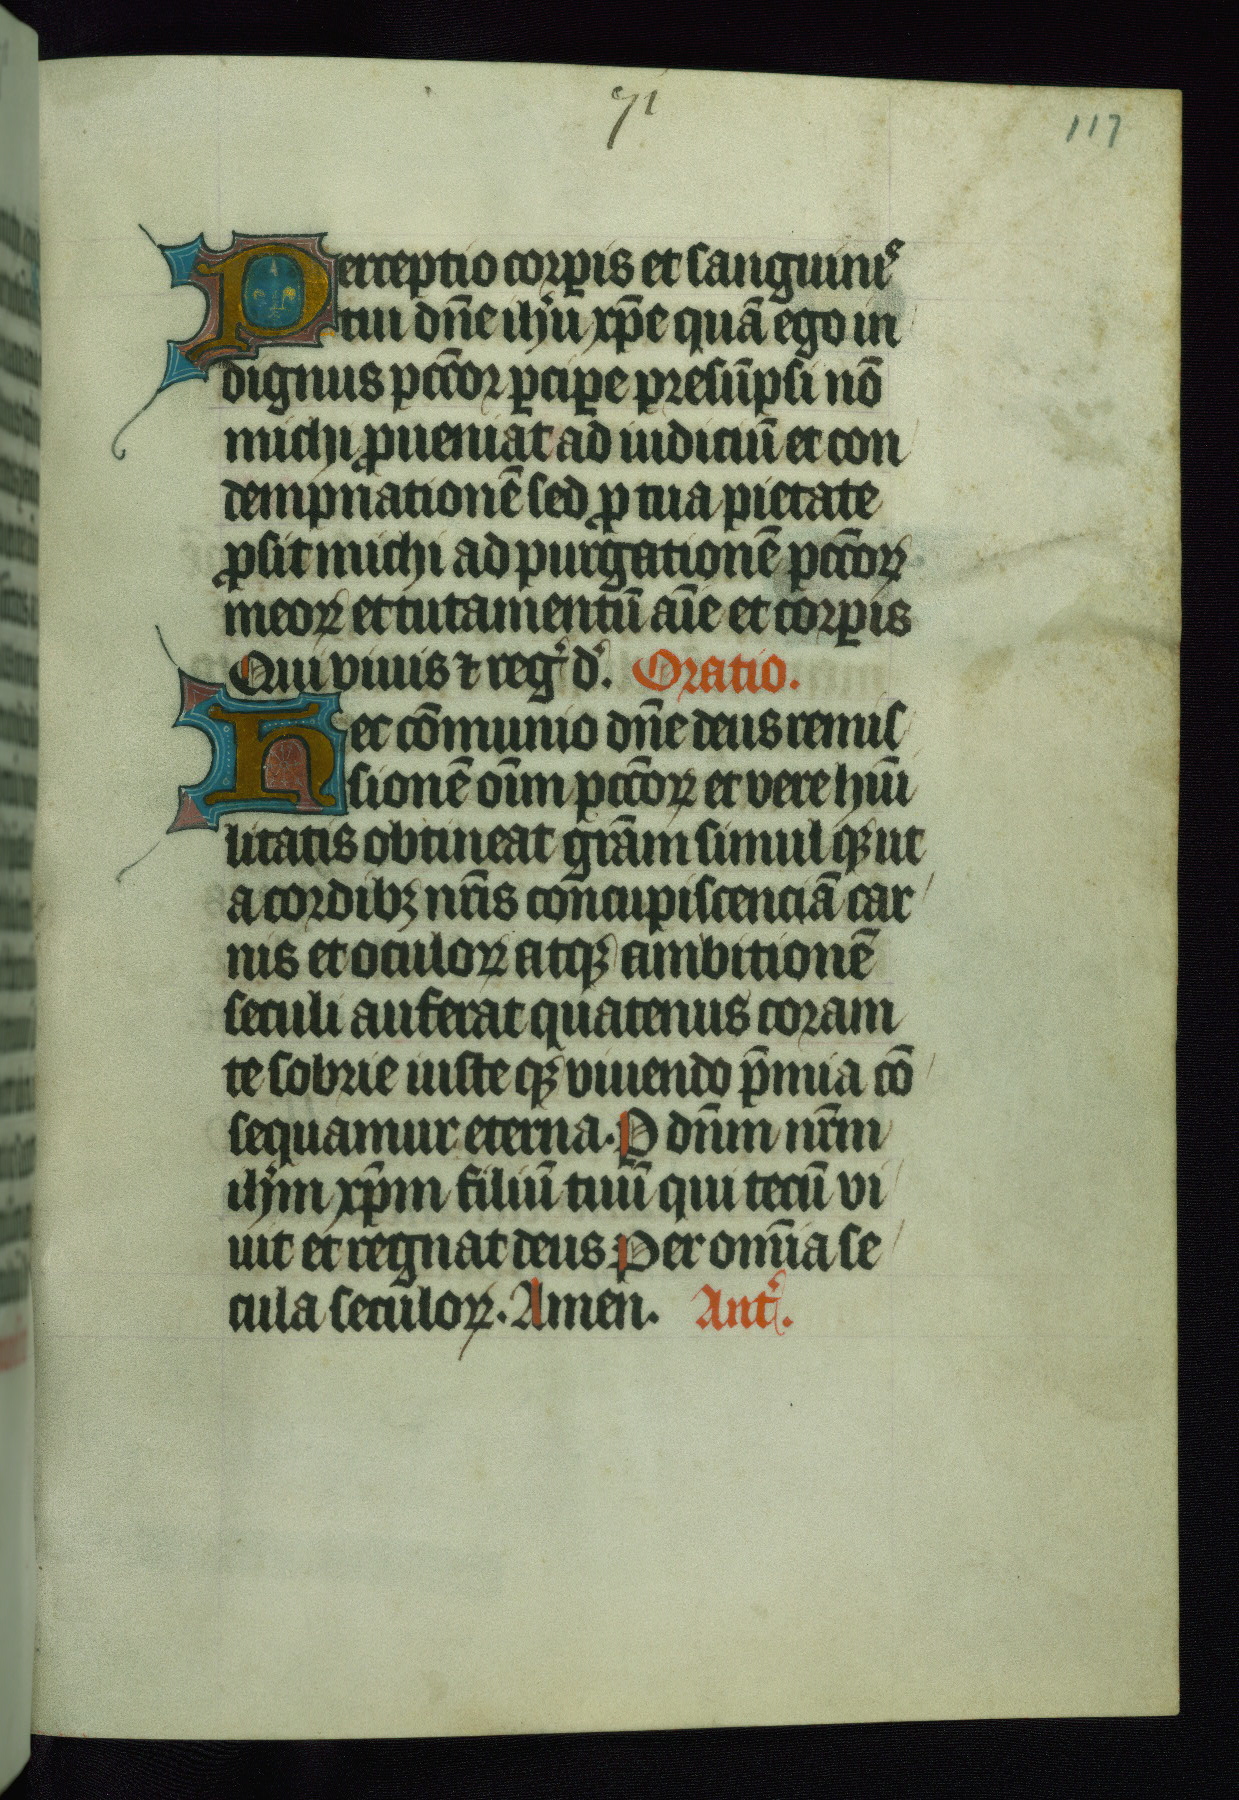 71
117
Perceptio corꝑis et sanguinis
tui dn̄e ih̄u xp̄e quā ego in
dignus pcc̄or ꝑcipe presūpsi nō
michi ꝓueniat ad iudiciū et con
dempnationē sed ꝓ tua pietate
ꝓsit michi ad purgationē pcc̄oꝝ
meoꝝ et tutamentū aīe et corꝑis
Qui viuis ⁊ reg̾ d̾. Oratio.
Hec cōmunio dn̄e deus remis
sionē oīm pcc̄oꝝ et vere hūi
litatis obtineat grām simul qꝫ ut
a cordibꝫ nr̄is concupiscenciā car
nis et oculoꝝ atqꝫ ambitionē
seculi auferat quatenus coram
te sobrie iuste qꝫ viuendo p̄mia cō
sequamur eterna. P dn̄m nr̄m
ih̄m xp̄m filiū tuū qui tecū vi
uit et regnat deus Per om̄ia se
cula seculoꝝ. Amen. Ant̾.